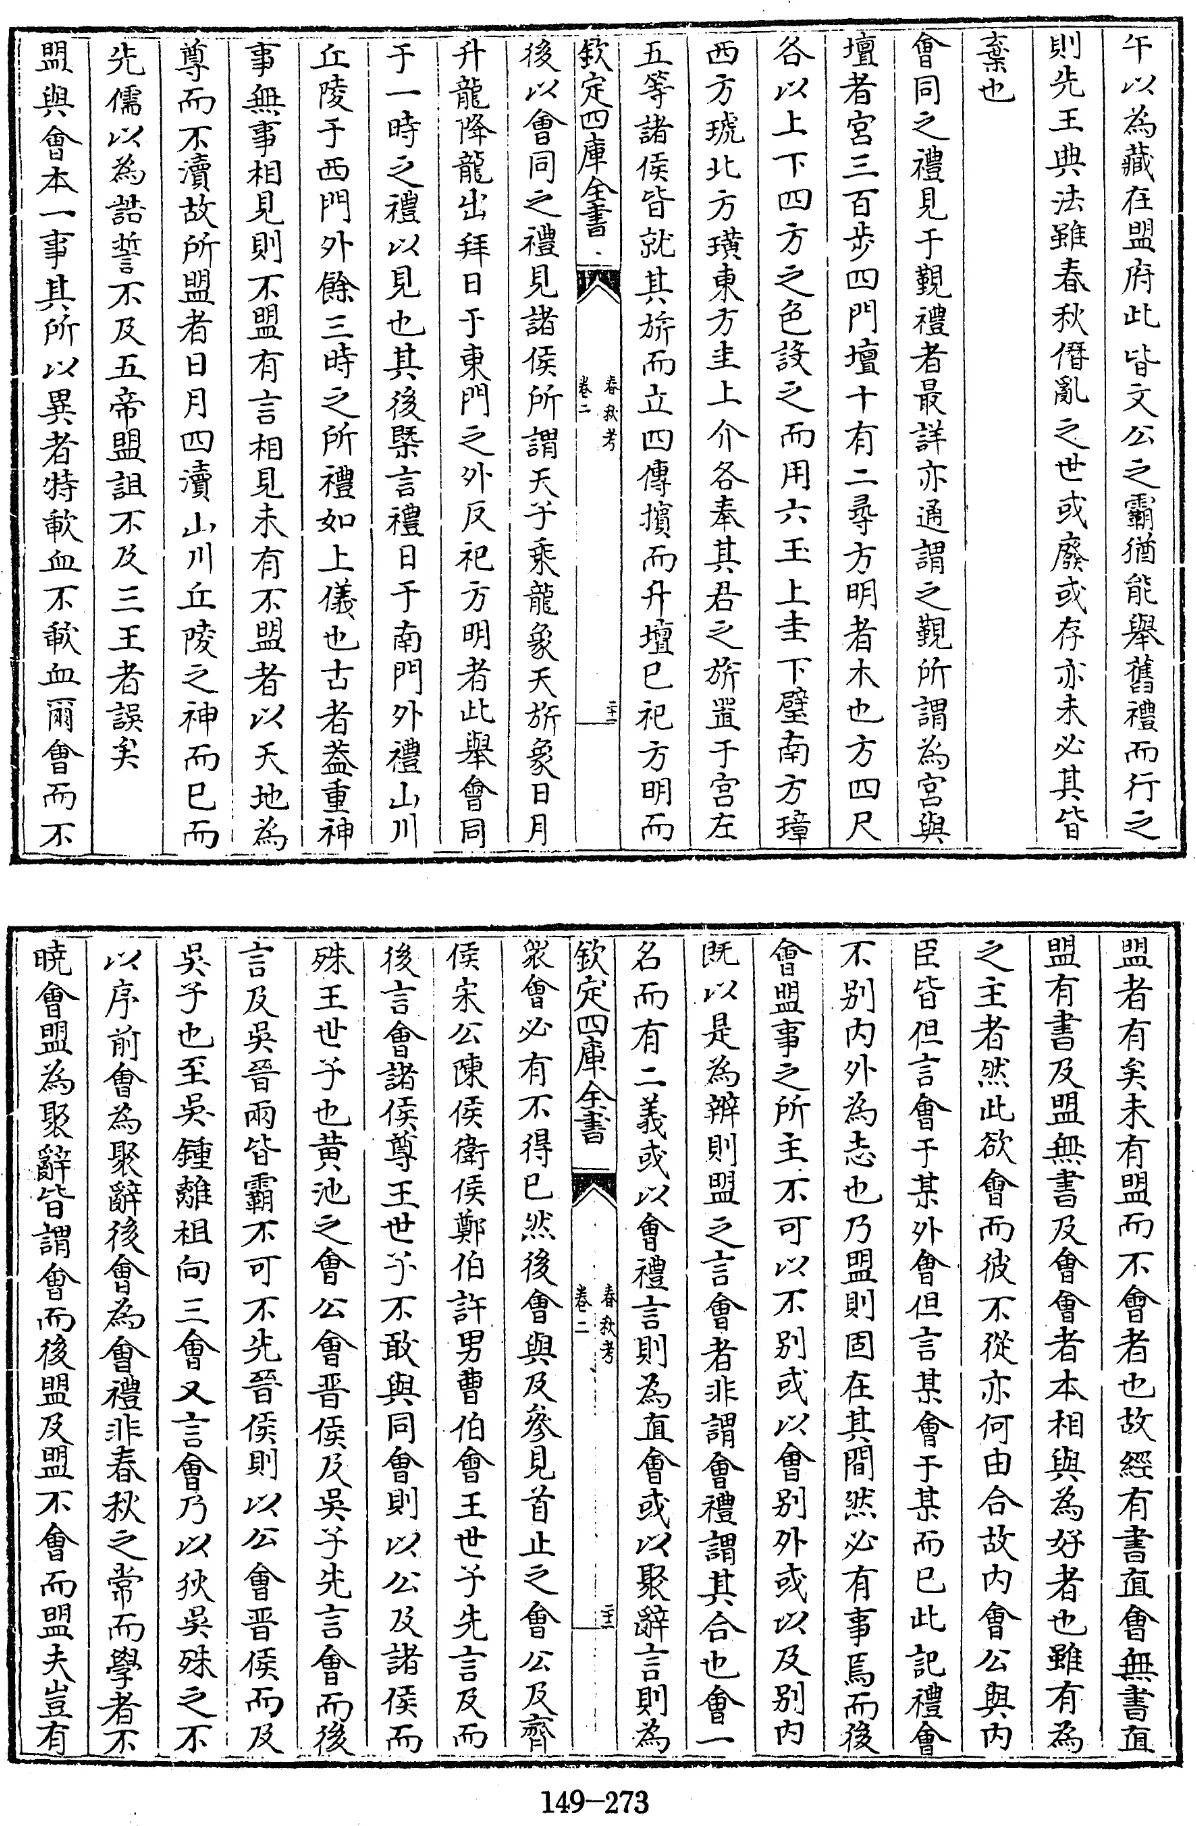 午以為藏在盟府此皆文公之霸猶能舉舊禮而行之
則先王典法雖春秋僭亂之世或廢或存亦未必其皆
棄也
會同之禮見于覲禮者最詳亦通謂之覲所謂為宮與
壇者宮三百步四門壇十有二尋方明者木也方四尺
各以上下四方之色設之而用六玉上圭下璧南方璋
西方琥北方璜東方圭上介各奉其君之旂置于宮左
五等諸侯皆就其旂而立四傳擯而升壇已祀方明而
欽定四庫全書
春秋考
卷二
二十一
後以會同之禮見諸侯所謂天子乘龍象天旂象日月
升龍降龍出拜日于東門之外反祀方明者此舉會同
于一時之禮以見也其後槩言禮日于南門外禮山川
丘陵于西門外餘三時之所禮如上儀也古者葢重神
事無事相見則不盟有言相見未有不盟者以天地為
尊而不瀆故所盟者日月四瀆山川丘陵之神而已而
先儒以為誥誓不及五帝盟詛不及三王者誤矣
盟與會本一事其所以異者特歃血不歃血爾會而不
盟者有矣未有盟而不會者也故經有書直會無書直
盟有書及盟無書及會會者本相與為好者也雖有為
之主者然此欲會而彼不從亦何由合故內會公與內
臣皆但言會于某外會但言某會于某而已此記禮會
不別內外為志也乃盟則固在其間然必有事焉而後
會盟事之所主不可以不別或以會別外或以及別內
既以是為辨則盟之言會者非謂會禮謂其合也會一
名而有二義或以會禮言則為直會或以聚辭言則為
欽定四庫全書
春秋考
卷二
二十二
衆會必有不得已然後會與及參見首止之會公及齊
侯宋公陳侯衛侯鄭伯許男曹伯會王世子先言及而
後言會諸侯尊王世子不敢與同會則以公及諸侯而
殊王世子也黃池之會公會晉侯及吳子先言會而後
言及吳晉兩皆霸不可不先晉侯則以公會晉侯而及
吳子也至吳鍾離柤向三會又言會乃以狄吳殊之不
以序前會為聚辭後會為會禮非春秋之常而學者不
曉會盟為聚辭皆謂會而後盟及盟不會而盟夫豈有
149-273